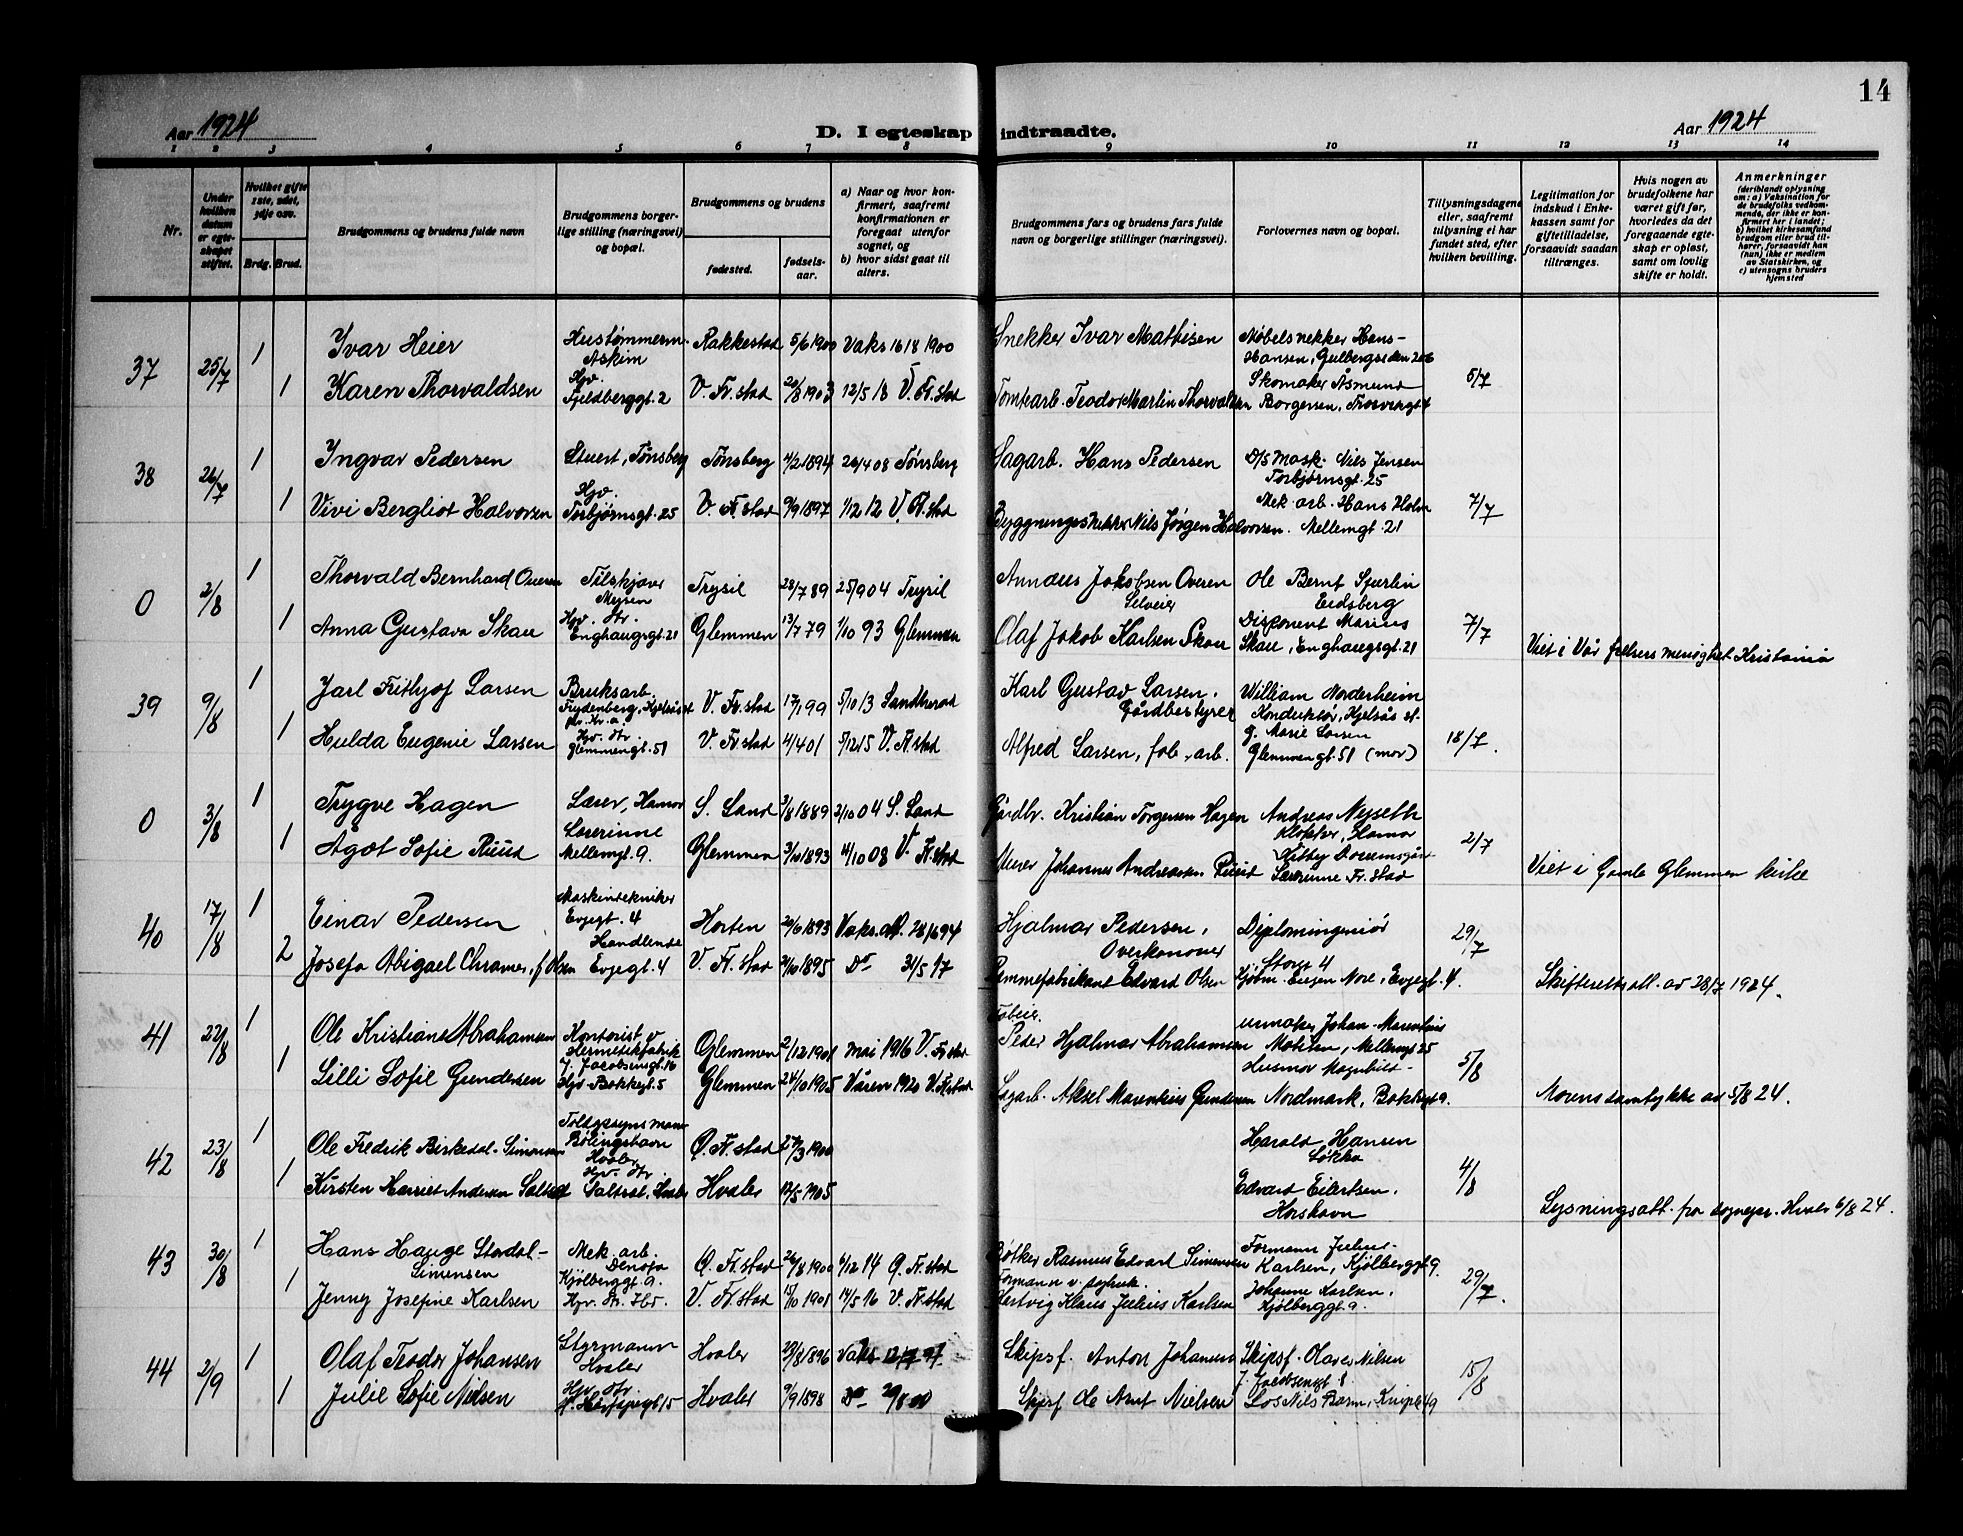 14
Aar 1924
D. I egteskap indtraadte.
Aar 1924
1 2 3 4 5 6 7 8 9 10 11 12 13 14
Nr.
Under hvilken datum er egteskapet stiftet.
Hvilket gifte 1ste, 2det, 3dje osv.
Brdg. Brud.
Brudgommens og brudens fulde navn
Brudgommens borgerlige stilling (næringsvei) og bopæl.
Brudgommens og brudens
fødested.
fødselsaar.
a) Naar og hvor konfirmert, saafremt konfirmationen er foregaat utenfor sognet, og
b) hvor sidst gaat til alters.
Brudgommens fars og brudens fars fulde navn og borgerlige stillinger (næringsvei).
Forlovernes navn og bopæl.
Tillysningsdagene eller, saafremt tillysning ei har fundet sted, efter hvilken bevilling.
Legitimation for indskud i Enkekassen samt for giftetilladelse, forsaavidt saadan tiltrænges.
Hvis nogen av brudefolkene har været gift før, hvorledes da det foregaaende egteskap er opløst, samt om lovlig skifte er holdt.
Anmerkninger (deriblandt oplysning om: a) Vaksination for de brudefolks vedkommende, der ikke er konfirmert her i landet; b) hvilket kirkesamfund brudgom eller brud tilhører, forsaavidt han (hun) ikke er medlem av Statskirken, og c) utensogns bruders hjemsted
37 25/7 1 Ivar Heier Hustømmerm. Askim Rakkestad 5/6 1900 Vaks 16 18 1900 Snekker Ivar Mathisen Møbelsnekker Hans Hansen,
1 Karen Thorvaldsen Hjv. Fjeldberggt. 2 V. Fr.stad 20/8 1903 12/5 18 V. Fr.stad Tomtearb. Teodor Martin Thorvaldsen Skomaker Åsmund Borgersen, 5/7
38 26/7 1 Ingvar Pedersen Stuert, Tønsberg Tønsberg 4/2 1894 26/4 08 Tønsberg Sagarb. Hans Pedersen D/S mask. Nils Jensen Torbjørnsgt. 25
1 Vivi Bergliot Halvorsen Hjv. Torbjørnsgt. 25 V. Fr.stad 9/9 1897 1/12 12 V. Fr.stad Byggningssnekker Nils Jørgen Halvorsen. Mek. arb. Hans Holm Mellemgt. 21 7/7
0 2/8 1 Thorvald Bernhard Overen Tilskjærer Mysen Trysil 28/7 89 25/9 04 Trysil Annæus Jakobsen Overen Selveier Ole Bernt Eidsberg
1 Anna Gustava Skau Hjv. Str. Enghaugsgt. 21 Glemmen 13/7 79 1/10 93 Glemmen Olaf Jakob Karlsen Skau Disponent Marius Skau, Enghaugsgt. 21 7/7 Viet i Vår frelsers menighet Kristiania
39 9/8 1 Jarl Frithjof Larsen Bruksarb. Frydenberg, Kjelsås st. pr. Kr.a. V. Fr.stad 17/1 99 5/10 13 Sandherad Karl Gustav Larsen, Gårdbestyrer William Norderheim Konduktør, Kjelsås st.
1 Hulda Eugenie Larsen Hjv. Str. Glemmengt. 51 V. Fr.stad 4/4 01 5/12 15 V. Fr.stad Alfred Larsen, fab. arb. g. Marie Larsen Glemmengt. 51 (mor) 18/7.
0 3/8 1 Trygve Hagen Lærer, Hamar S. Land 3/8 1889 2/10 04 S. Land Gårdbr. Kristian Torgersen Hagen Andreas Nesseth Klokker, Hamar
1 Ågot Sofie Ruud Lærerinne Mellemgt. 9. Glemmen 3/10 1893 4/10 08 V. Fr.stad Murer Johannes Andreassen Ruud Lærerinne Fr.stad 2/7 Viet i Gamle Glemmen kirke
40 17/8 1 Einar Pedersen Maskintekniker Evjegt. 4 Horten 20/6 1893 Vaks.att. 28/6 94 Hjalmar Pedersen, Overkanoner Diplomingeniør Storgt 4 29/7
2 Josefa Abigael Chramer, f. Olsen Handlende Evjegt. 4 V. Fr.stad 2/10 1895 Do 31/5 97 Remmefabrikant Edvard Olsen Kjøbm. Eugen Nore, Evjegt. 4. Skifterettsatt. av 28/7 1924.
41 22/8 1 Ole Kristian Abrahamsen Kontorist v Hermetikfabrik J. Jacobsensgt. 16 Glemmen 2/12 1901 Mai 1916 V. Fr.stad Peder Hjalmar Abrahamsen Urmaker Johan Marentius Mellemgt 25
1 Lilli Sofie Gundersen Hjv. Bakkegt. 5 Glemmen 24/10 1905 Våren 1920 V. Fr.stad Sagarb. Aksel Marentius Gundersen Husmor Magnhild Nordmark, Bakkegt 9. 5/8 Morens samtykke av 5/8 24.
42 23/8 1 Ole Fredrik Birkedal-Simonsen Toldopsynsmann Bølingshavn Hvaler Ø. Fr.stad 27/3 1900 Harald Hansen Løkka
1 Kirsten Harriet Andersen Hjv. Str. Hvaler Hvaler 12/5 1905 Edvard Eilertsen, 4/8 Lysningsatt. fra sognepr. Hvaler 6/8 24.
43 30/8 1 Hans Hauge Stordal-Simensen Mek. arb. Denofa Kjølberggt. 9. Ø. Fr.stad 26/8 1900 6/12 14 Ø. Fr.stad Bøtker Rasmus Edvart Simensen Formann Julius Karlsen, Kjølberggt. 9.
1 Jenny Josefine Karlsen Hjv. Str. V. Fr.stad 15/10 1901 14/5 16 V. Fr.stad Formann v. Hartvig Klaus Julius Karlsen Johanne Karlsen, Kjølberggt. 9. 29/7.
44 2/9 1 Olaf Teodor Johansen Styrmann Hvaler Hvaler 23/8 1896 Vaks 97 Skipsf. Anton Johansen Skipsf. Olaves Nilsen J. Jacobsensgt 8 15/8
1 Julie Sofie Nilsen Hjv. Str. Hvaler 9/9 1898 Do 29/8 00 Skipsf Ole Arnt Nielsen Los Nils